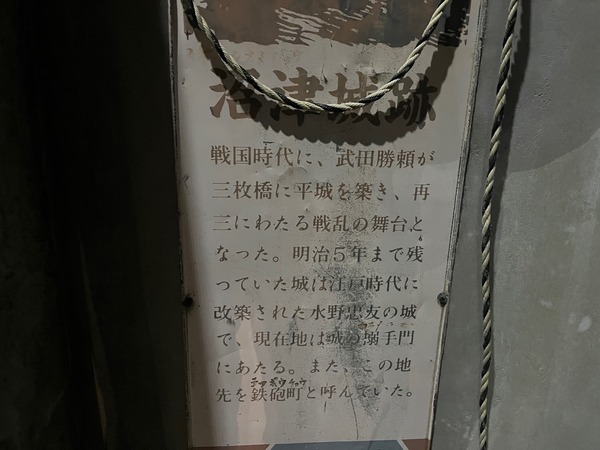 沼津城跡
戦国時代に、武田勝頼が
三枚橋に平城を築き、再
三にわたる戦乱の舞台と
なった。明治5年まで残
っていた城は江戸時代に
改築された水野忠友の城
で、現在地は城の搦手門
にあたる。また、この地
テッポウチョウ
先を鉄砲町と呼んでいた。